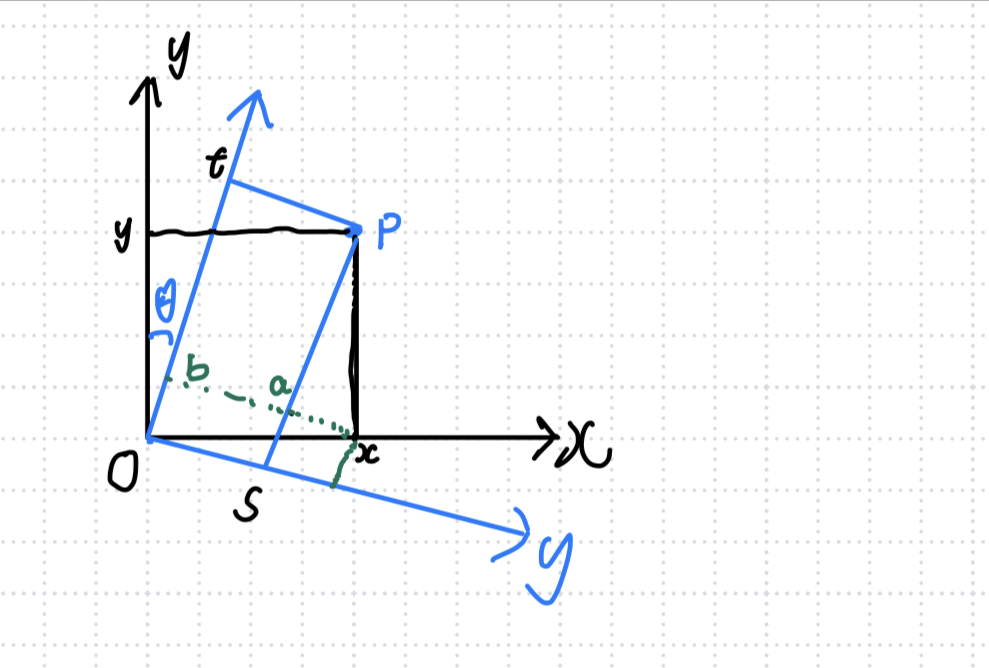 y
t
y
P
θ
b
a
x
x
O
s
y